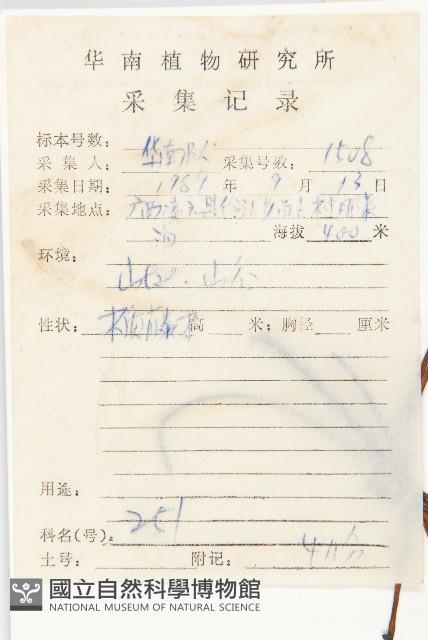 华南植物研究所
采集记录
标本号数：
采集人：华南队 采集号数：1508
采集日期：1989年9月13日
采集地点：广西
海拔 400 米
环境：
山坡．山谷
性状： 高 米；胸径 厘米
用途：
科名(号)。251
土号： 附记：
國立自然科學博物館
NATIONAL MUSEUM OF NATURAL SCIENCE